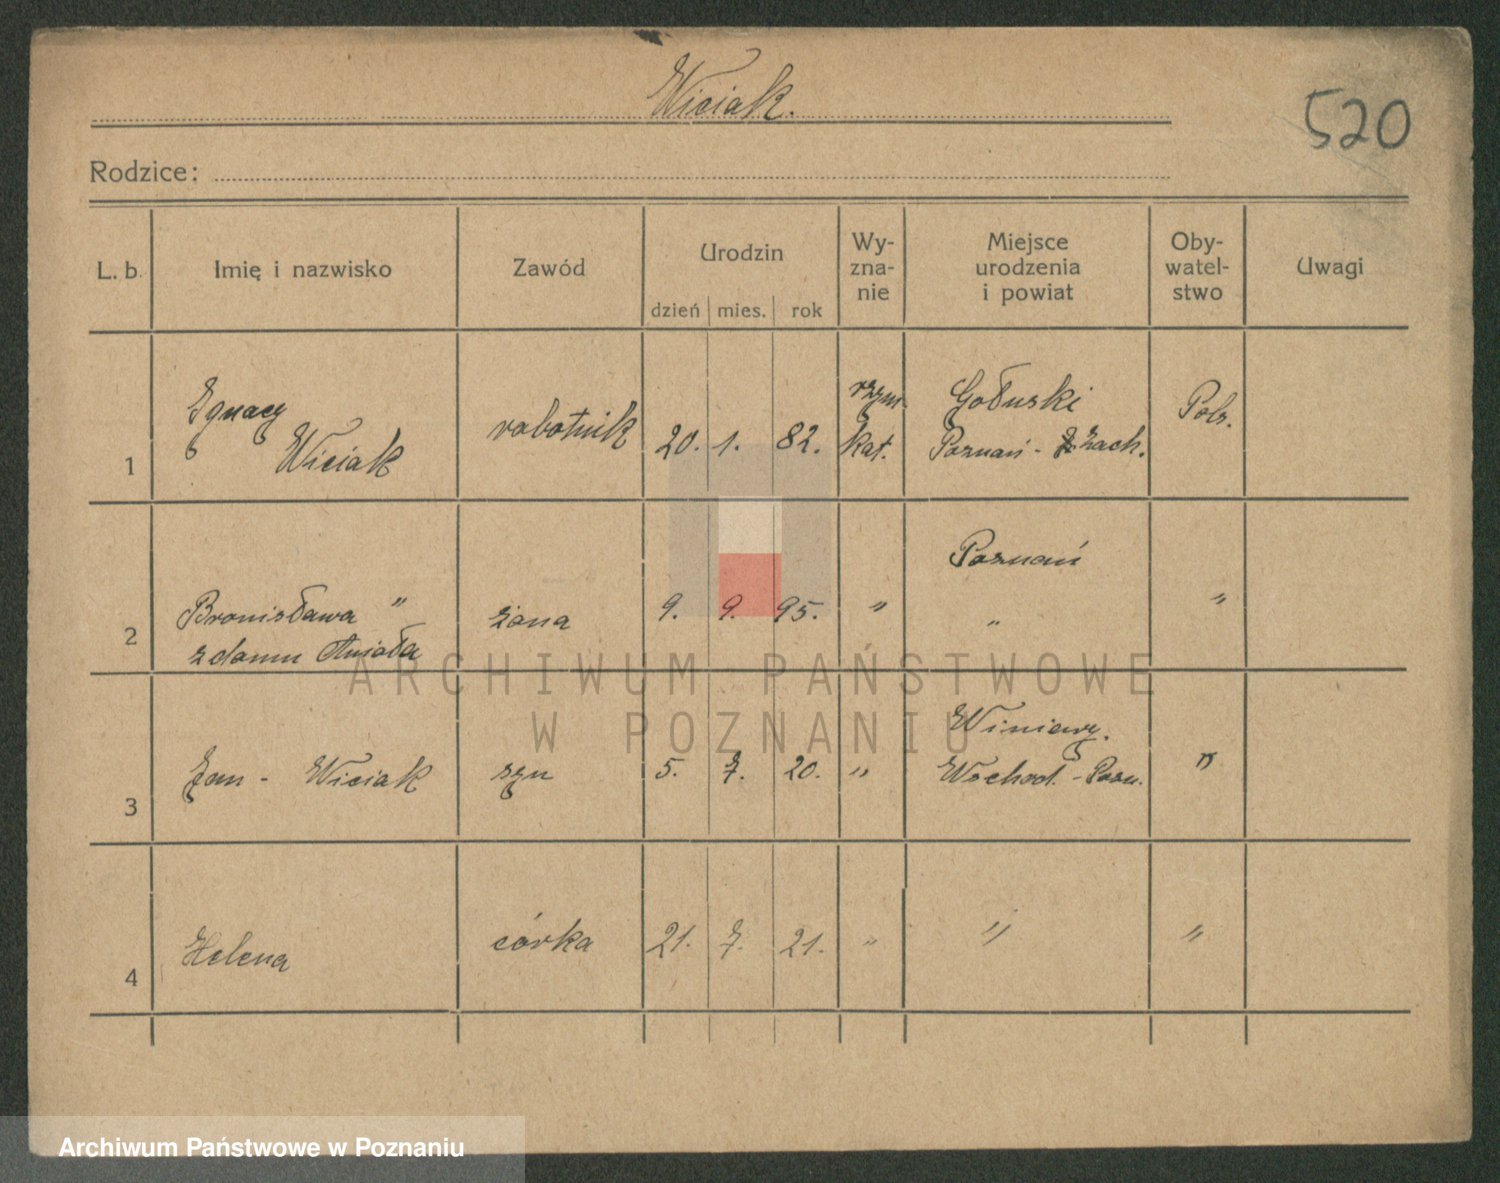 Wiciak.
520
Rodzice:
L. b. Imię i nazwisko Zawód Urodzin dzień mies. rok Wy-zna-nie Miejsce urodzenia i powiat Oby-watel-stwo Uwagi
1 Ignacy Wiciak robotnik 20. 1. 82. rzym. kat. Gołuski Poznań - Zach. Pols.
2 Bronisława " z domu żona 9. 9. 95. " Poznań " "
3 Jan - Wiciak syn 5. 7. 20. " Winiary. Wschod. - Pozn. "
4 Helena córka 21. 7. 21. " " "
ARCHIWUM PAŃSTWOWE
W POZNANIU
Archiwum Państwowe w Poznaniu